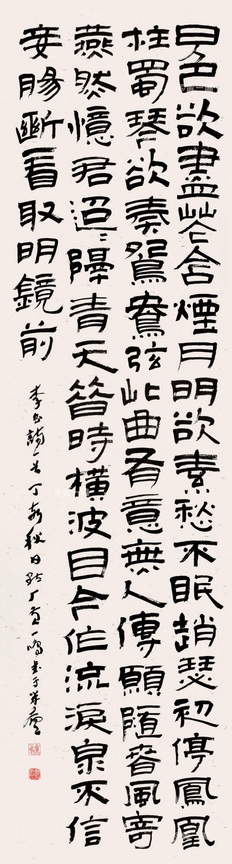 日色欲盡花含煙月明欲素愁不眠趙瑟初停鳳凰
柱蜀琴欲奏鴛鴦弦此曲有意無人傳願隨春風寄
燕然憶君迢〻隔青天昔時橫波目今作流淚泉不信
妾腸斷看取明鏡前
李白詩一首丁亥秋日一鳴書于